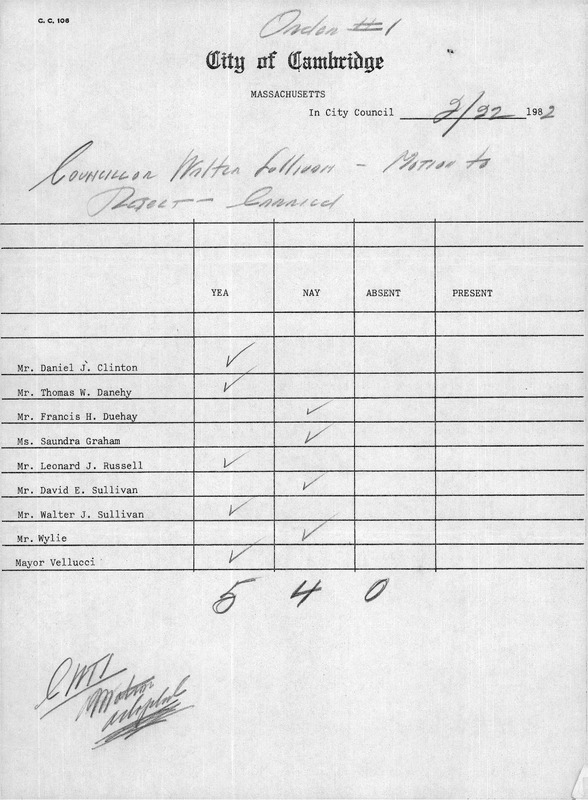 C. C. 106
Order #1
City of Cambridge
MASSACHUSETTS
In City Council 2/22 1982
Councillor Walter Sullivan - Motion to
Reject - Carried
YEA NAY ABSENT PRESENT
Mr. Daniel J. Clinton ✓
Mr. Thomas W. Danehy ✓
Mr. Francis H. Duehay ✓
Ms. Saundra Graham ✓
Mr. Leonard J. Russell ✓
Mr. David E. Sullivan ✓
Mr. Walter J. Sullivan ✓
Mr. Wylie ✓
Mayor Vellucci ✓
5 4 0
Motion
adopted